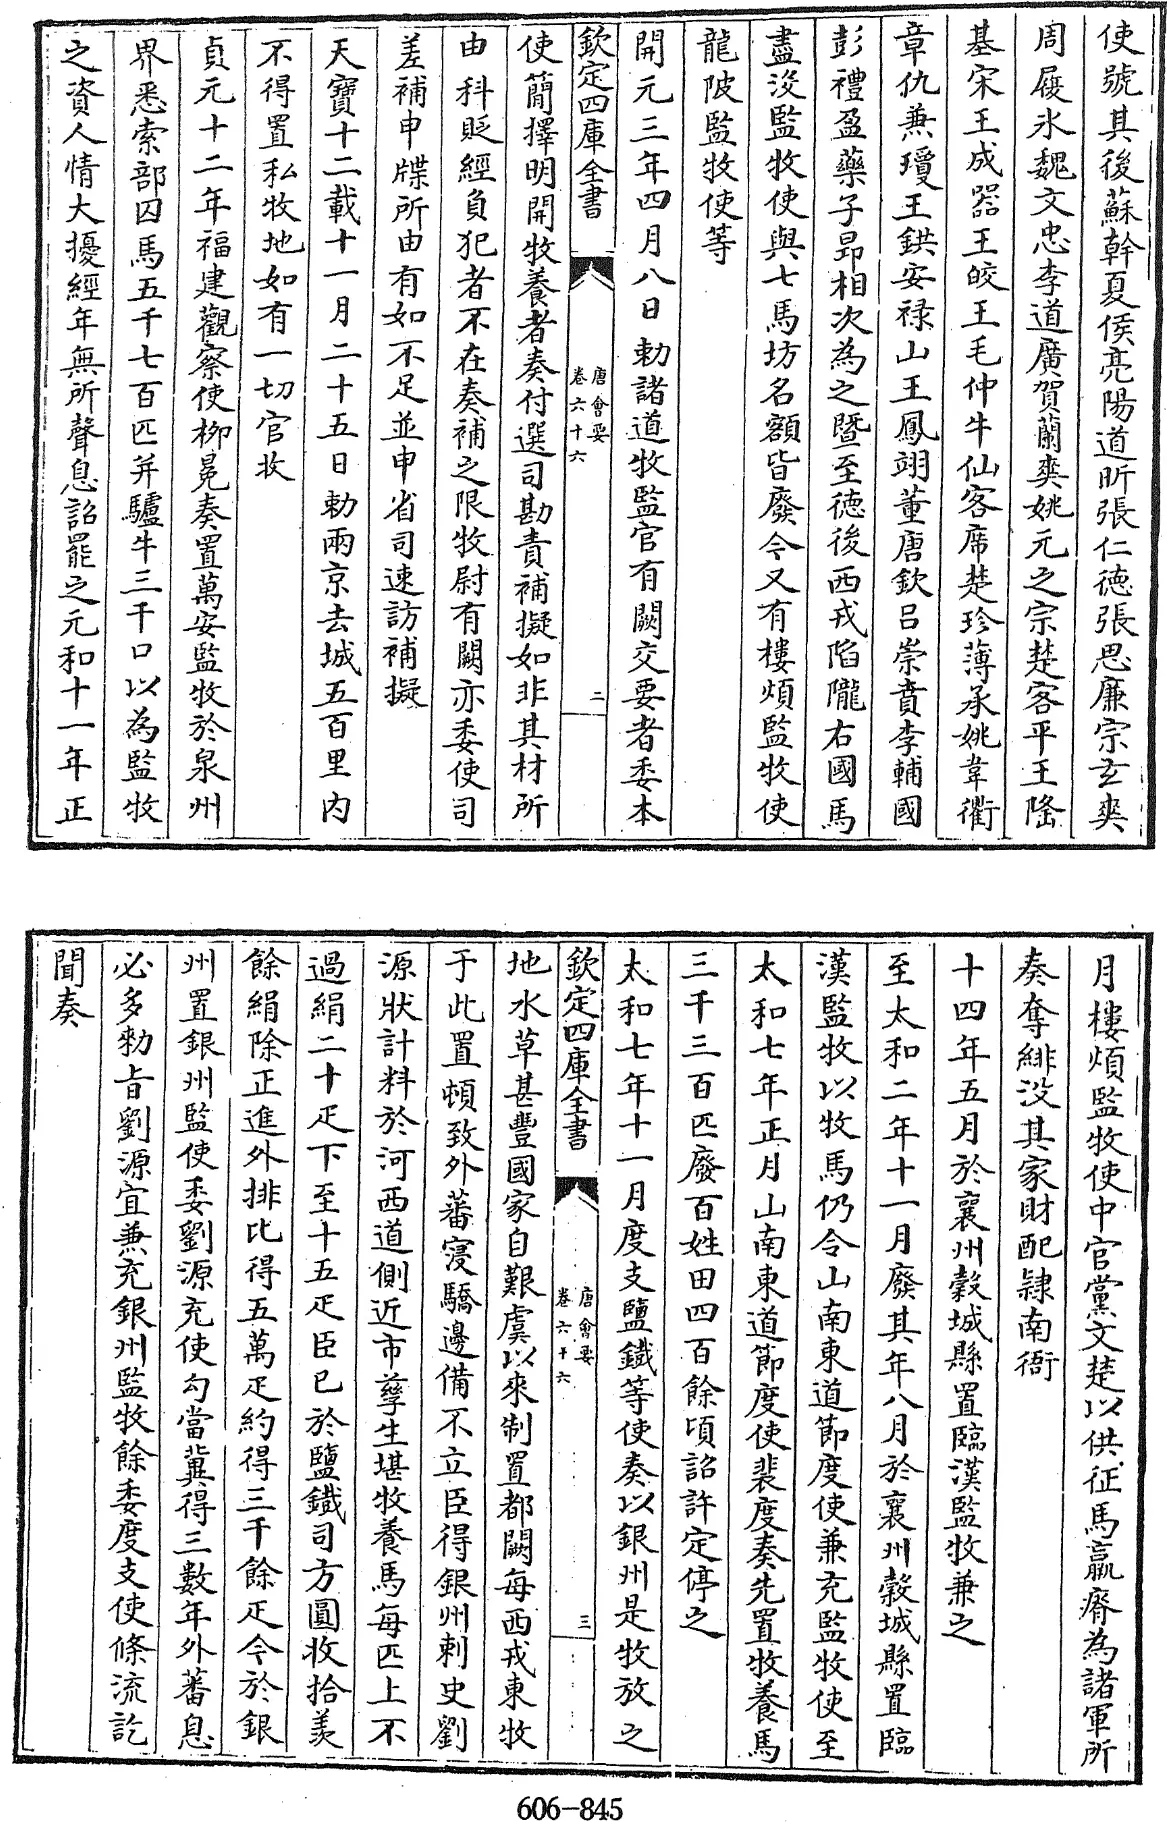 使號其後蘇幹夏侯亮陽道昕張仁德張思廉宗玄爽
周履氷魏文忠李道廣賀蘭爽姚元之宗楚客平王隆
基宋王成器王皎王毛仲牛仙客席楚珍薄承姚韋衢
章仇兼瓊王鉷安禄山王鳳翊董唐欽吕崇賁李輔國
彭禮盈藥子昂相次為之暨至德後西戎陷隴右國馬
盡没監牧使與七馬坊名額皆廢今又有樓煩監牧使
龍陂監牧使等
開元三年四月八日勅諸道牧監官有闕交要者委本
欽定四庫全書
唐會要
卷六十六
二
使簡擇明閑牧養者奏付選司勘責補擬如非其材所
由科貶經負犯者不在奏補之限牧尉有闕亦委使司
差補申牒所由有如不足並申省司速訪補擬
天寶十二載十一月二十五日勅兩京去城五百里内
不得置私牧地如有一切官收
貞元十二年福建觀察使柳冕奏置萬安監牧於泉州
界悉索部囚馬五千七百匹并驢牛三千口以為監牧
之資人情大擾經年無所聲息詔罷之元和十一年正
月樓煩監牧使中官黨文楚以供征馬羸瘠為諸軍所
奏奪緋没其家財配隸南衙
十四年五月於襄州穀城縣置臨漢監牧兼之
至太和二年十一月廢其年八月於襄州穀城縣置臨
漢監牧以牧馬仍令山南東道節度使兼充監牧使至
太和七年正月山南東道節度使裴度奏先置牧養馬
三千三百匹廢百姓田四百餘頃詔許定停之
太和七年十一月度支鹽鐵等使奏以銀州是牧放之
欽定四庫全書
唐會要
卷六十六
三
地水草甚豐國家自艱虞以來制置都闕每西戎東牧
于此置頓致外蕃寖驕邊備不立臣得銀州刺史劉
源狀計料於河西道側近市孳生堪牧養馬每匹上不
過絹二十疋下至十五疋臣已於鹽鐵司方圓收拾羨
餘絹除正進外排比得五萬疋約得三千餘疋今於銀
州置銀州監使委劉源充使勾當冀得三數年外蕃息
必多勅旨劉源宜兼充銀州監牧餘委度支使條流訖
聞奏
606-845